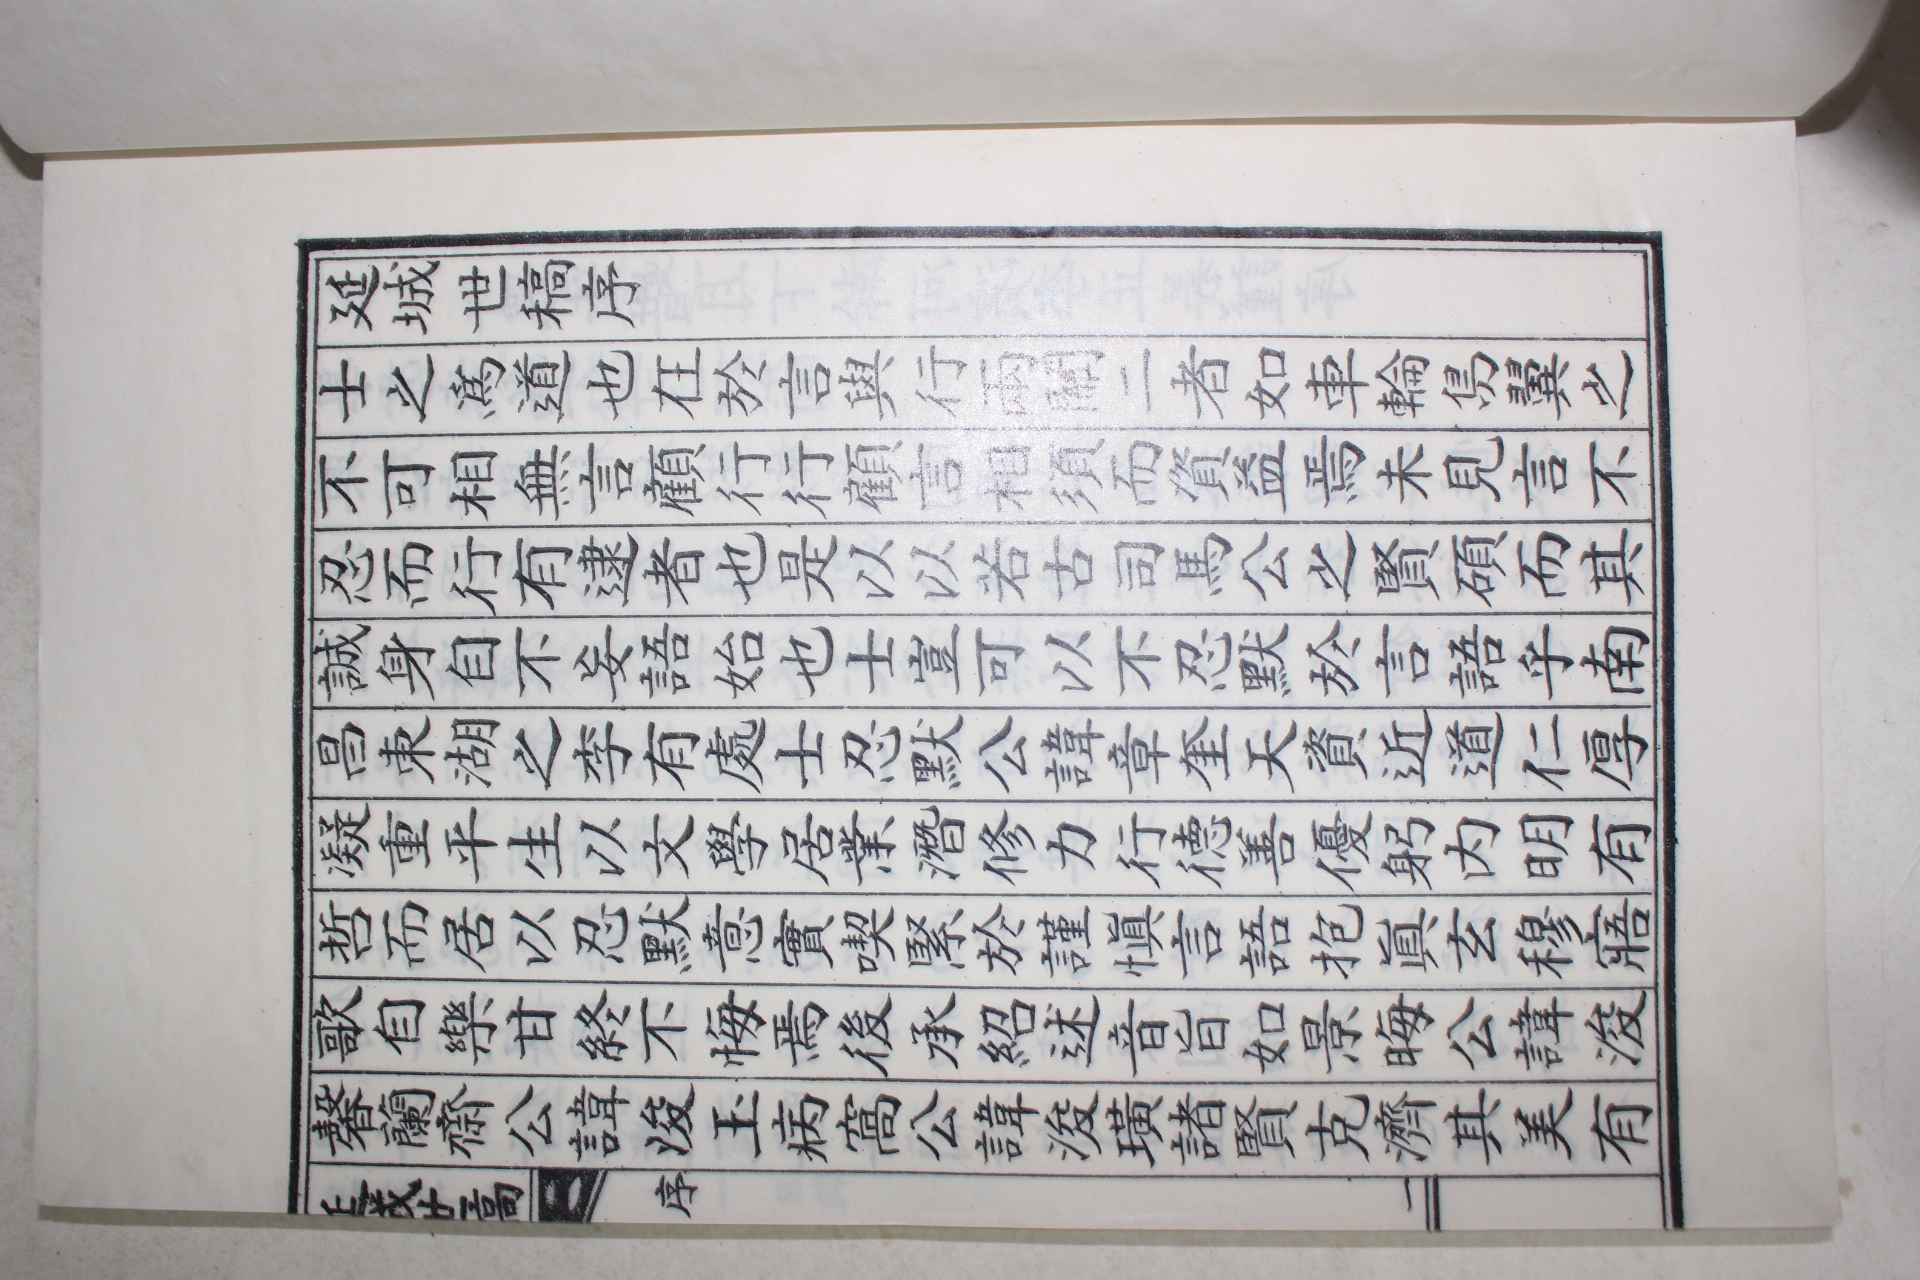 延城世稿序
士之爲道也在於言與行兩關二者如車輪鳥翼之
不可相無言顧行行顧言相須而資益焉未見言不
忍而行有逮者也是以以若古司馬公之賢碩而其
誠身自不妄語始也士豈可以不忍默於言語乎南
昌東湖之李有處士忍默公諱章奎天資近道仁厚
凝重平生以文學居業潛修力行德善優躬內明有
哲而居以忍默意實喫緊於謹愼言語抱眞玄穆寤
歌自樂甘終不悔焉後承紹述音旨如景晦公諱浚
馨蘭齋公諱浚玉病窩公諱浚璜諸賢克濟其美有
延城世稿
序
二